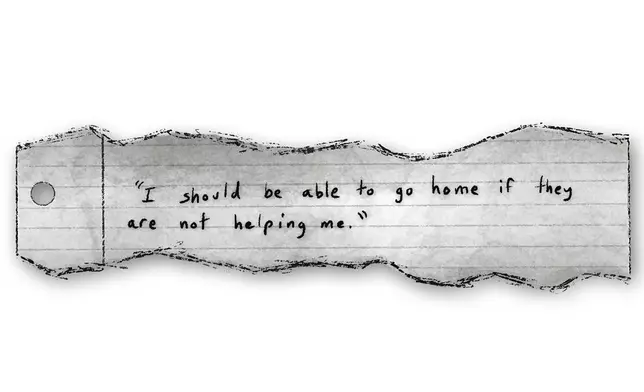 "I should be able to go home if they
are not helping me."